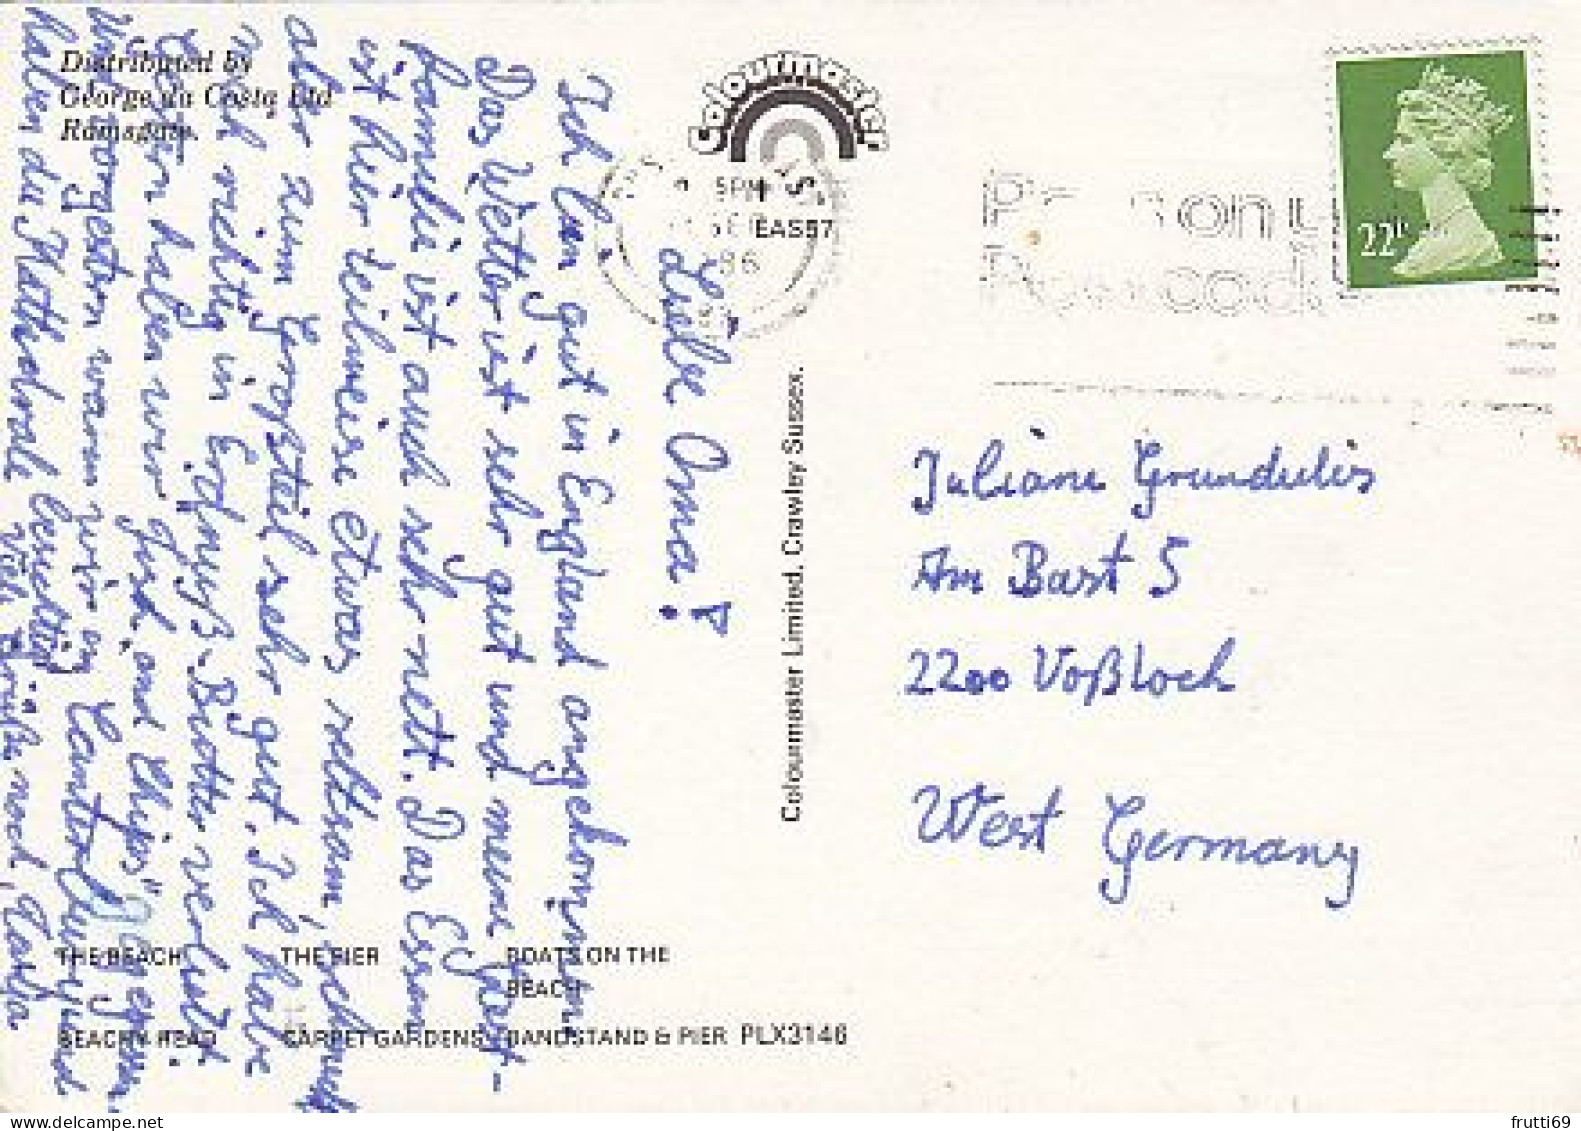 Distributed by
George da Costa Ltd
Ramsgate.
Colourmaster
5PM
SEP
86
EAS57
22P
Liebe Oma!
Ich bin gut in England angekommen.
Das Wetter ist sehr gut und meine Gast-
familie ist auch sehr nett. Das Essen
ist hier teilweise etwas seltsam, schmeckt
aber zum Großteil sehr gut. Ich habe
mich richtig in Erdnuß-Butter verliebt.
haben wir "Fish and Chips" gegessen.
Vorgestern waren wir in Canterbury und
haben die Kathedrale besichtigt.
Viele Grüße noch,
Colourmaster Limited. Crawley Sussex.
Juliane Grundulis
Am Bast 5
2200 Voßloch
West Germany
THE BEACH
THE PIER
BOATS ON THE
BEACH
BEACHY HEAD
CARPET GARDENS
BANDSTAND & PIER PLX3146
frutti69